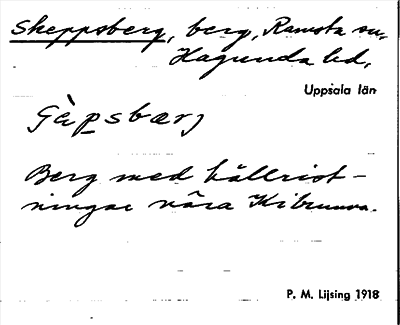 Skeppsberg, berg, Ramsta sn.
Hagunda hd,
Uppsala län
Berg med hällrist-
ningar nära Kibrunna.
P. M. Lijsing 1918